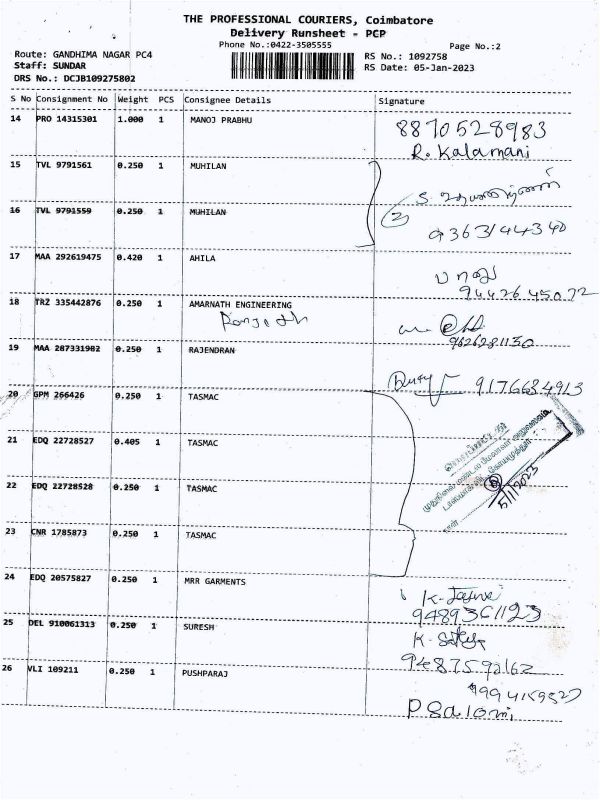 THE PROFESSIONAL COURIERS, Coimbatore
Delivery Runsheet - PCP
Phone No.:0422-3505555
Page No.:2
Route: GANDHIMA NAGAR PC4
RS No.: 1092758
Staff: SUNDAR
RS Date: 05-Jan-2023
DRS No.: DCJB109275802
S No Consignment No Weight PCS Consignee Details Signature
14 PRO 14315301 1.000 1 MANOJ PRABHU
8870528983
R. Kalamani
15 TVL 9791561 0.250 1 MUHILAN
16 TVL 9791559 0.250 1 MUHILAN
2
9363144340
17 MAA 292619475 0.420 1 AHILA
9442645072
18 TRZ 335442876 0.250 1 AMARNATH ENGINEERING
Ranjeth
9626281130
19 MAA 287331902 0.250 1 RAJENDRAN
9176684913
20 GPM 266426 0.250 1 TASMAC
21 EDQ 22728527 0.405 1 TASMAC
5/1/2023
22 EDQ 22728528 0.250 1 TASMAC
23 CNR 1785873 0.250 1 TASMAC
24 EDQ 20575827 0.250 1 MRR GARMENTS
9489361123
25 DEL 910061313 0.250 1 SURESH
9487592162
26 VLI 109211 0.250 1 PUSHPARAJ